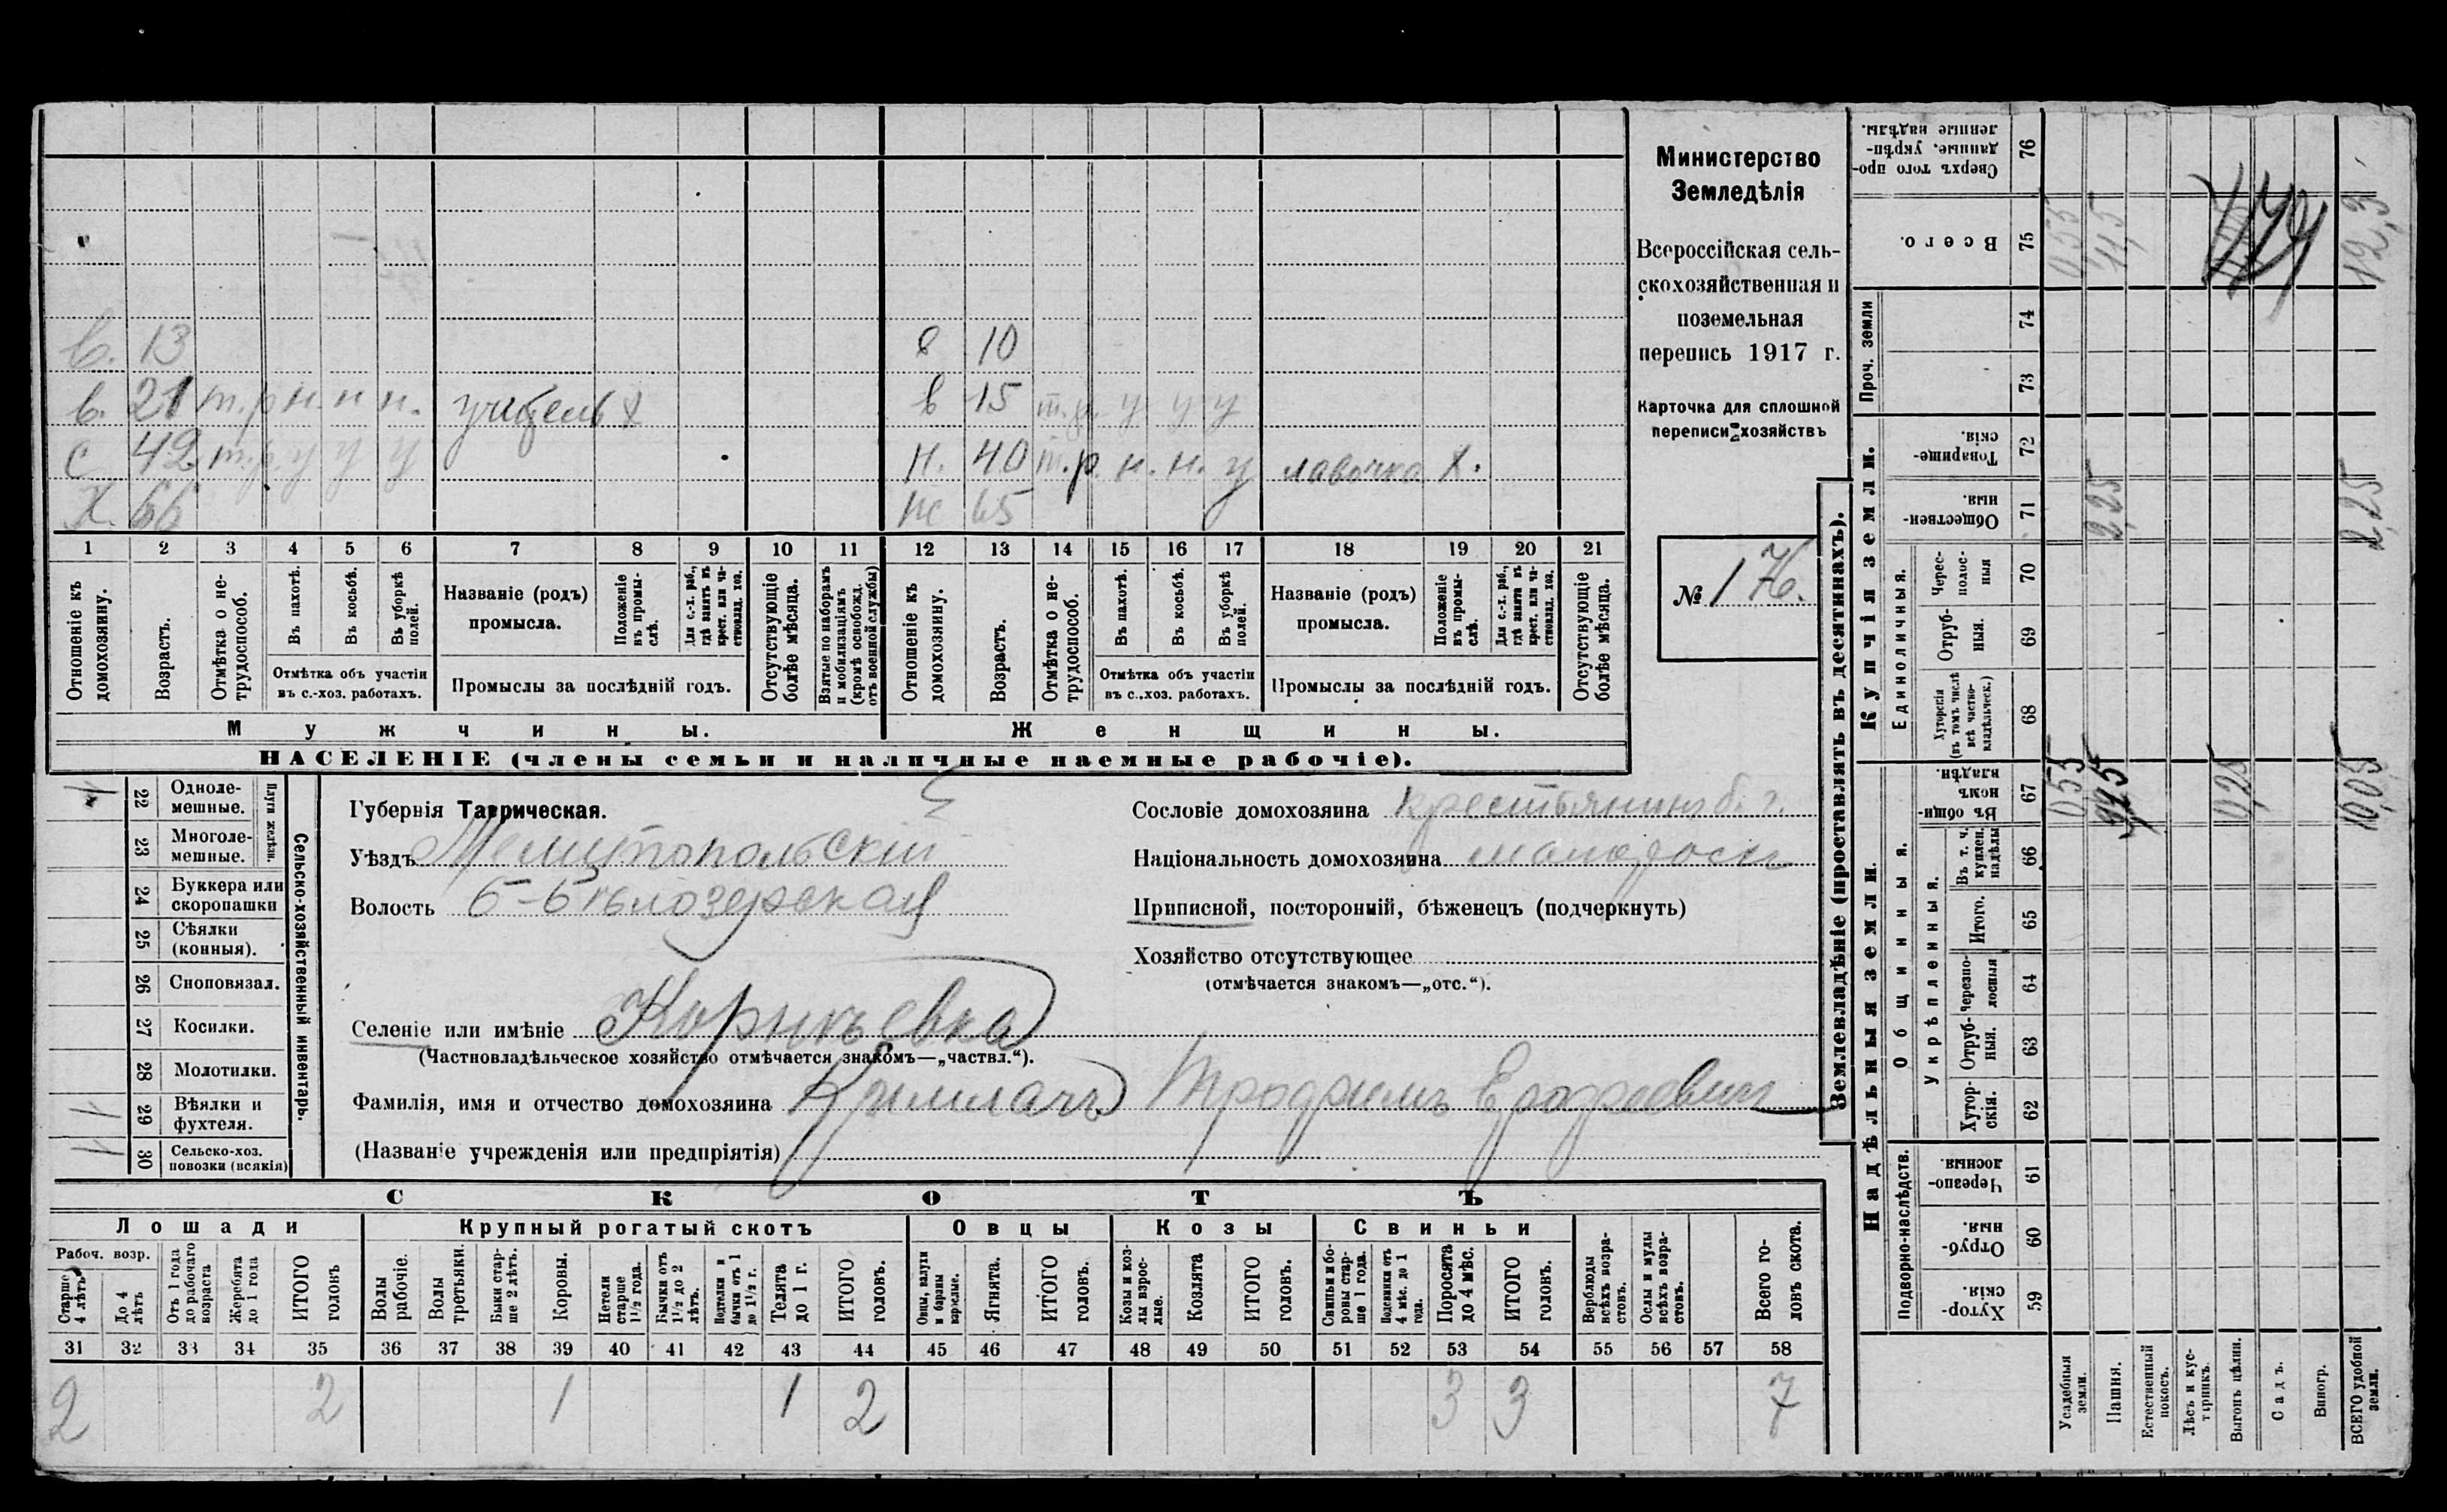 в. 13
в. 21 т.р н. н н. учитель х
с 42 т.р. у у у
х. 66
в 10
в 15 т.р. у у у
н. 40 т.р. н. н. у лавочка х.
65
1 2 3 4 5 6 7 8 9 10 11 12 13 14 15 16 17 18 19 20 21
Отношеніе къ домохозяину.
Возрастъ.
Отмѣтка о нетрудоспособ.
Въ пахотѣ.
Въ косьбѣ.
Въ уборкѣ полей.
Отмѣтка объ участіи
въ с.-хоз. работахъ.
Названіе (родъ)
промысла.
Положеніе въ промыслѣ.
Для с.-х. раб., гдѣ занятъ въ крест. или частновлад. хоз.
Промыслы за послѣдній годъ.
Отсутствующіе болѣе мѣсяца.
Взятые по наборамъ и мобилизаціямъ (кромѣ освобожд. отъ военной службы)
Отношеніе къ домохозяину.
Возрастъ.
Отмѣтка о нетрудоспособ.
Въ пахотѣ.
Въ косьбѣ.
Въ уборкѣ полей.
Отмѣтка объ участіи
въ с.-хоз. работахъ.
Названіе (родъ)
промысла.
Положеніе въ промыслѣ.
Для с.-х. раб., гдѣ занята въ крест. или частновлад. хоз.
Промыслы за послѣдній годъ.
Отсутствующіе болѣе мѣсяца.
Мужчины.
Женщины.
НАСЕЛЕНІЕ (члены семьи и наличные наемные рабочіе).
Министерство
Земледѣлія
Всероссійская сель-
скохозяйственная и
поземельная
перепись 1917 г.
Карточка для сплошной
переписи хозяйствъ
№ 176.
22 Одноле-
мешные.
23 Многоле-
мешные.
Плуги желѣзн.
24 Буккера или
скоропашки
25 Сѣялки
(конныя).
26 Сноповязал.
27 Косилки.
28 Молотилки.
29 Вѣялки и
фухтеля. 1
30 Сельско-хоз.
повозки (всякія) 1
Сельско-хозяйственный инвентарь.
Губернія Таврическая.
Уѣздъ Мелитопольскій
Волость Б-Бѣлозерская
Селеніе или имѣніе
(Частновладѣльческое хозяйство отмѣчается знакомъ—„частвл.“).
Фамилія, имя и отчество домохозяина
(Названіе учрежденія или предпріятія)
Сословіе домохозяина крестьянинъ
Національность домохозяина малороссъ
Приписной, посторонній, бѣженецъ (подчеркнуть)
Хозяйство отсутствующее
(отмѣчается знакомъ—„отс.“).
СКОТЪ
Лошади Крупный рогатый скотъ Овцы Козы Свиньи
Рабоч. возр.
Старше 4 лѣтъ
До 4 лѣтъ
Отъ 1 года до рабочаго возраста
Жеребята до 1 года
ИТОГО головъ
Волы рабочіе.
Волы третьяки.
Быки старше 2 лѣтъ.
Коровы.
Нетели старше 1½ года.
Бычки отъ 1½ до 2 лѣтъ.
Подтелки и бычки отъ 1 до 1½ г.
Телята до 1 г.
ИТОГО головъ.
Овцы, валухи и бараны взрослые.
Ягнята.
ИТОГО головъ.
Козы и козлы взрослые.
Козлята
ИТОГО головъ.
Свиньи и боровы старше 1 года.
Подсвинки отъ 4 мѣс. до 1 года.
Поросята до 4 мѣс.
ИТОГО головъ.
Верблюды всѣхъ возрастовъ.
Ослы и мулы всѣхъ возрастовъ.
Всего головъ скота.
31 32 33 34 35 36 37 38 39 40 41 42 43 44 45 46 47 48 49 50 51 52 53 54 55 56 57 58
2 2 1 1 2 3 3 7
Землевладѣніе (проставлять въ десятинахъ).
Купчія земли.
Надѣльныя земли.
Сверхъ того проданные, укрѣпленные надѣлы. 76
Всего. 75 0,55 11,5 12,3
Проч. земли 74 73
Товарищескія. 72
Общественныя. 71 2,25 2,25
Единоличныя.
Чересполосныя 70
Отрубныя. 69
Хуторскія (въ томъ числѣ всѣ частновладѣльческ.) 68
Въ общинномъ владѣн. 67 0,55 0,25 10,05
Общинныя.
Укрѣпленныя.
Въ т. ч. куплен. надѣлы 66
Итого. 65
Черезполосныя 64
Отрубныя. 63
Хуторскія. 62
Подворно-наслѣдств.
Черезполосныя. 61
Отрубныя. 60
Хуторскія. 59
Усадебныя земли.
Пашня.
Естественный покосъ.
Лѣсъ и кустарникъ.
Выгонъ цѣлин.
Садъ.
Виногр.
ВСЕГО удобной земли.